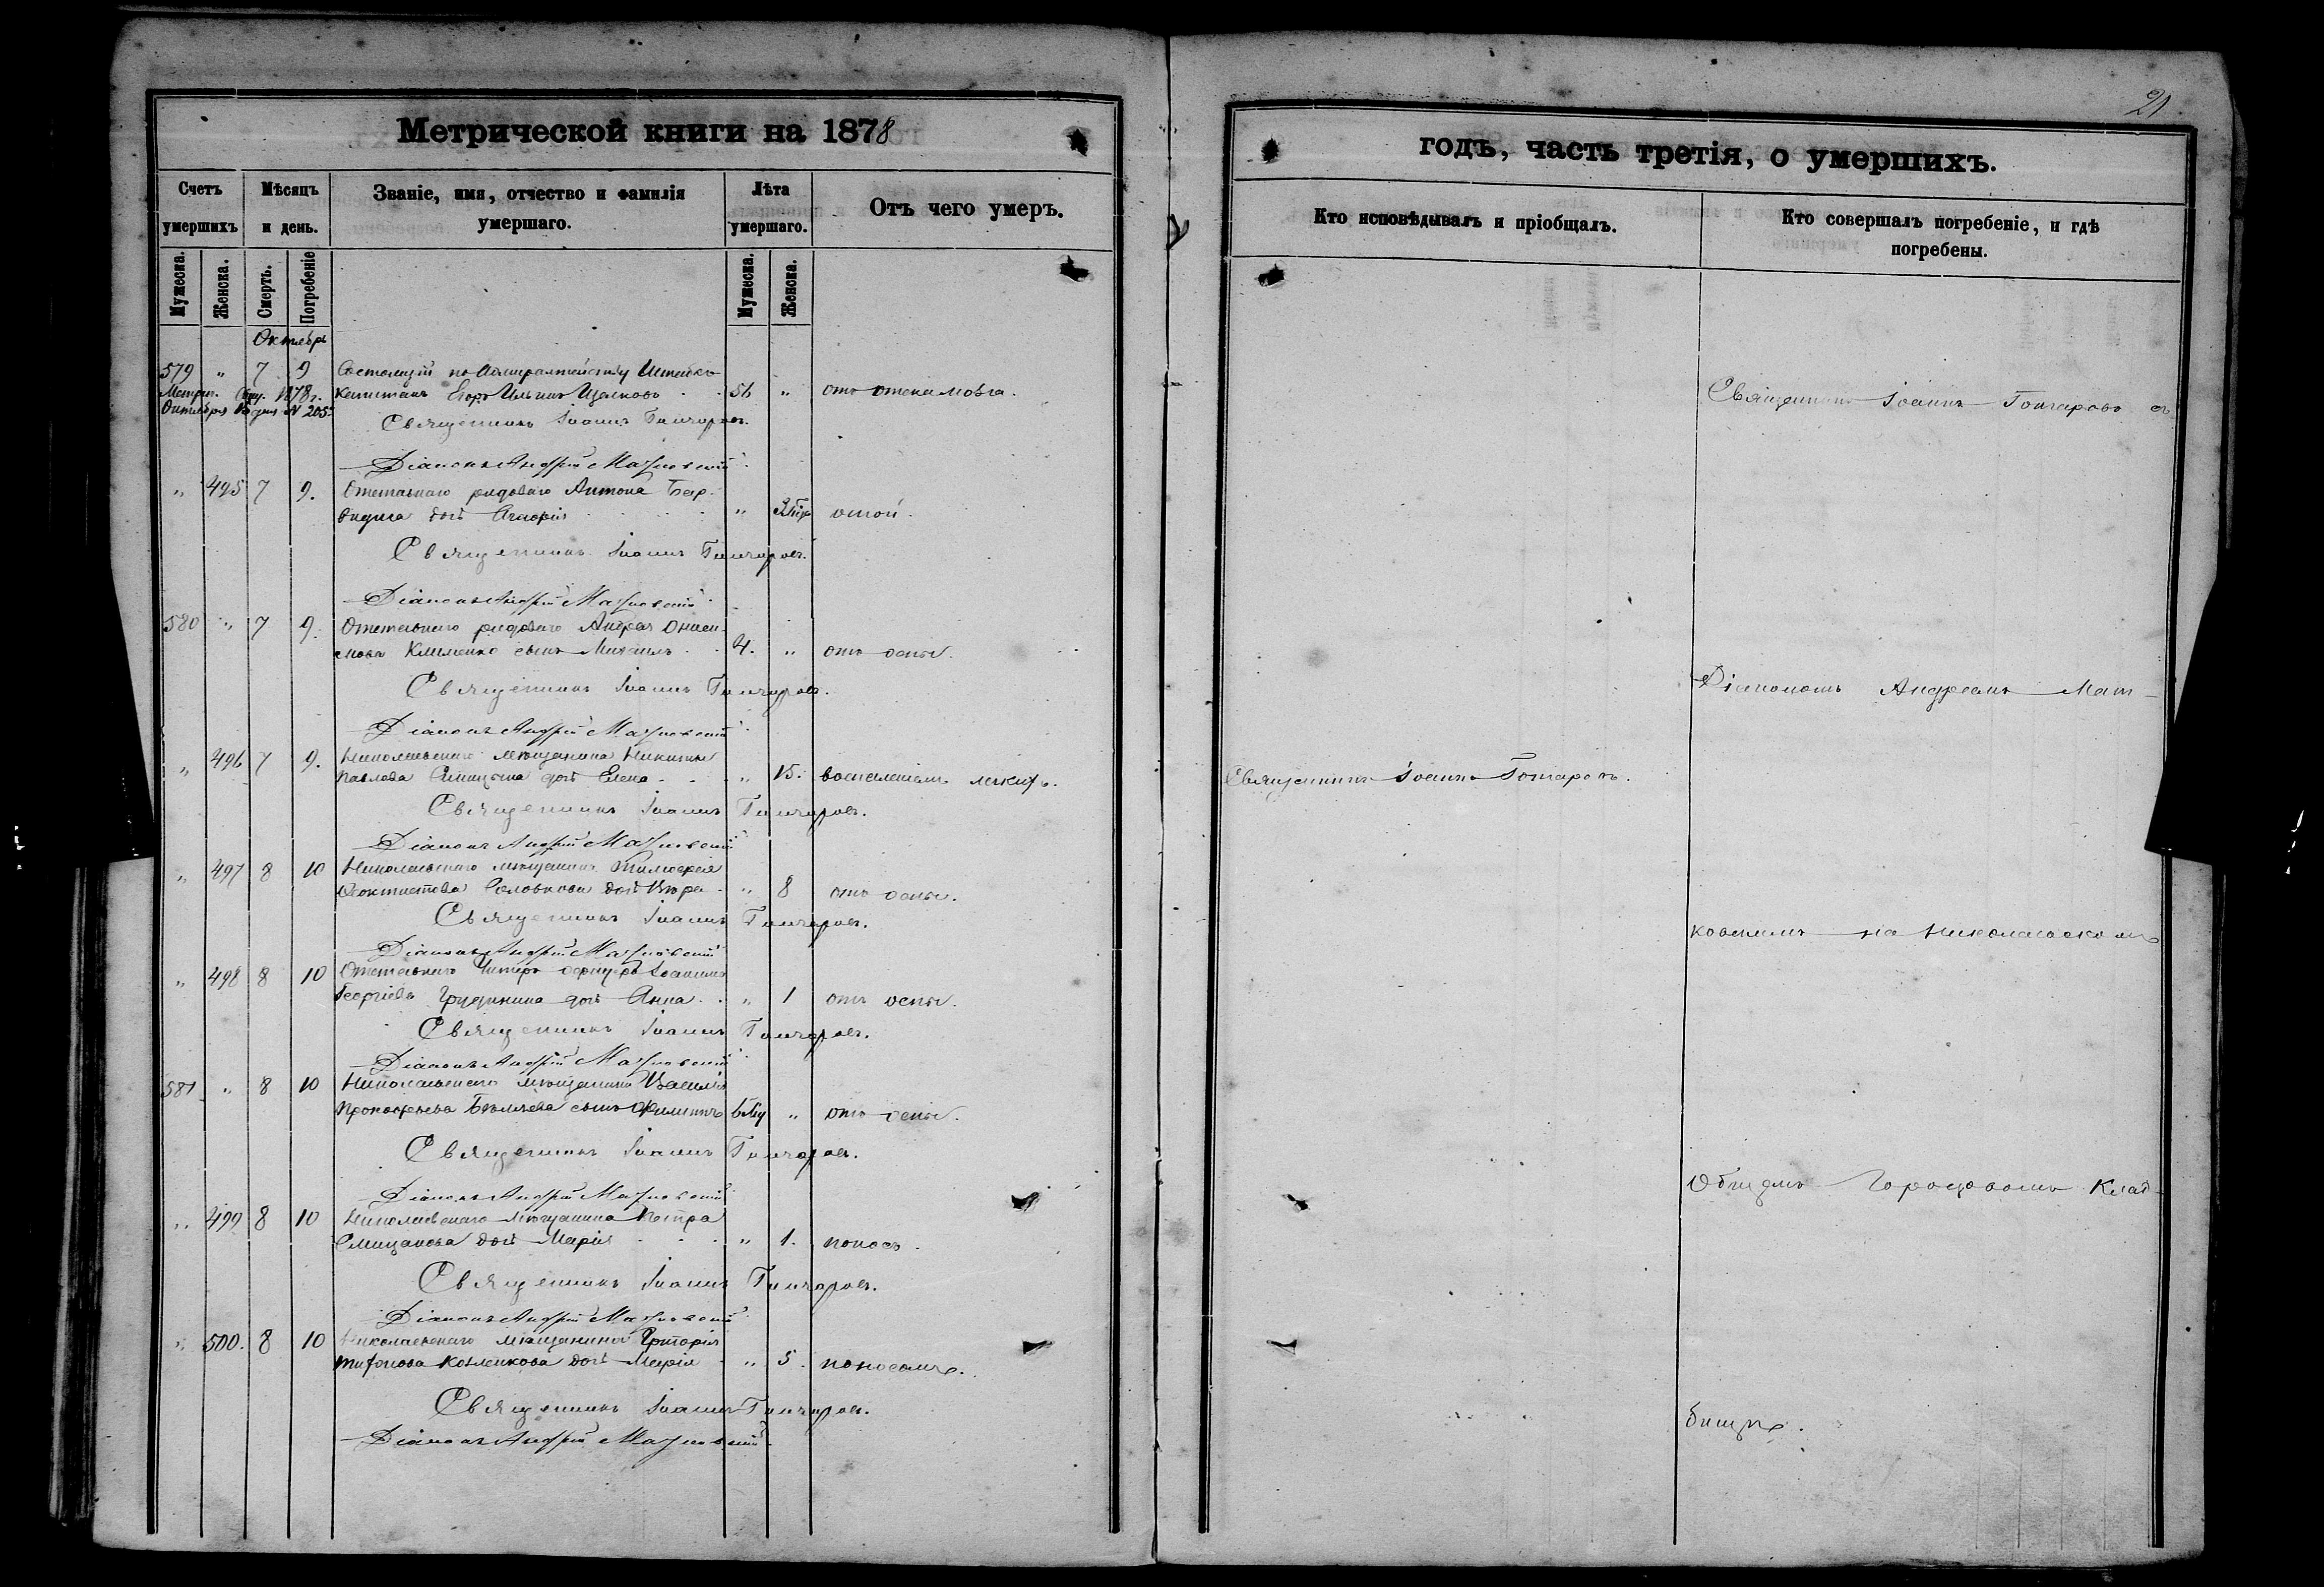 21
Метрической книги на 1878
годъ, часть третія, о умершихъ.
Счетъ умершихъ
Мѣсяцъ и день.
Званіе, имя, отчество и фамилія умершаго.
Лѣта умершаго.
Отъ чего умеръ.
Кто исповѣдывалъ и пріобщалъ.
Кто совершалъ погребеніе, и гдѣ погребены.
Мужеска. Женска. Смерть. Погребеніе Мужеска. Женска.
Октябрь
579 " 7 9 Состоящій по Адмиралтейству Штабсъ
Капитанъ Егоръ Ильинъ 56 " отъ отека мозга.
Октября № 205
Священникъ Іоаннъ Гончаровъ.
Діаконъ Андрей
" 495 7 9. Отставнаго рядоваго Антона
дочь " оспой.
Священникъ Іоаннъ Гончаровъ.
Діаконъ Андрей
580 " 7 9. Отставнаго рядоваго Андрея Ониси-
мова Клименко сынъ Михаилъ 4. " отъ оспы.
Священникъ Іоаннъ Гончаровъ.
Діаконъ Андрей
" 496 7 9. Николаевскаго мѣщанина Никиты
Павлова дочь Елена " 15. воспаленіемъ легкихъ.
Священникъ Іоаннъ Гончаровъ.
Діаконъ Андрей
" 497 8 10 Николаевскаго мѣщанина Тимофея
Феоктистова дочь Вѣра " 8 отъ оспы.
Священникъ Іоаннъ Гончаровъ.
Діаконъ Андрей
" 498 8 10 Отставнаго Унтеръ офицера
Георгіева дочь Анна " 1 отъ оспы.
Священникъ Іоаннъ Гончаровъ.
Діаконъ Андрей
581 " 8 10 Николаевскаго мѣщанина Василія
Прокофьева Бѣляева сынъ Филиппъ " отъ оспы.
Священникъ Іоаннъ Гончаровъ.
Діаконъ Андрей
" 499 8 10 Николаевскаго мѣщанина Петра
дочь Марія " 1. поносъ.
Священникъ Іоаннъ Гончаровъ.
Діаконъ Андрей
" 500. 8 10 Николаевскаго мѣщанина Григорія
Козленкова дочь Марія " 5. поносомъ.
Священникъ Іоаннъ Гончаровъ.
Діаконъ Андрей
Священникъ Іоаннъ Гончаровъ.
Священникъ Іоаннъ Гончаровъ съ
Діакономъ Андреемъ Мат-
ковскимъ на Николаевскомъ
Общемъ Городовомъ Клад-
бищѣ.